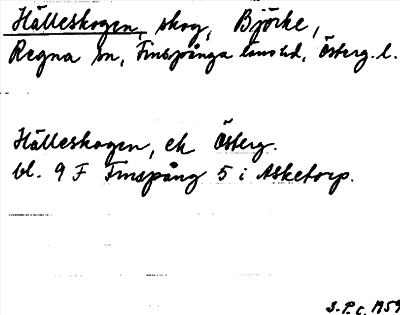 Hälleskogen, skog, Björke,
Regna sn, Finspånga länshd, Österg. l.
Hälleskogen, ek Österg.
bl. 9 F Finspång 5 i Asketorp.
S.P.c. 1959